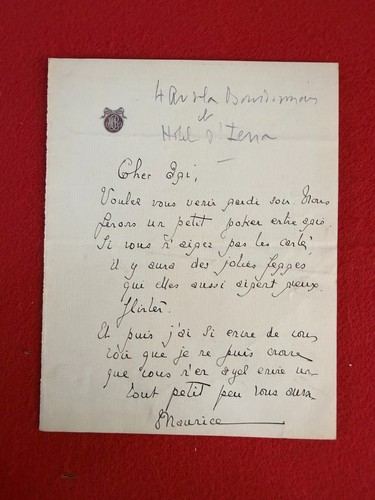 4 Av de la Bourdonnais
et
Hotel d'Iena
Cher Ami,
Voulez vous venir jeudi soir. Nous
ferons un petit poker entre amis
Si vous n'aimez pas les cartes,
il y aura des jolies femmes
qui elles aussi aiment mieux
flirter.
Et puis j'ai si envie de vous
voir que je ne puis croire
que vous n'en ayez envie un
tout petit peu vous aussi
Maurice